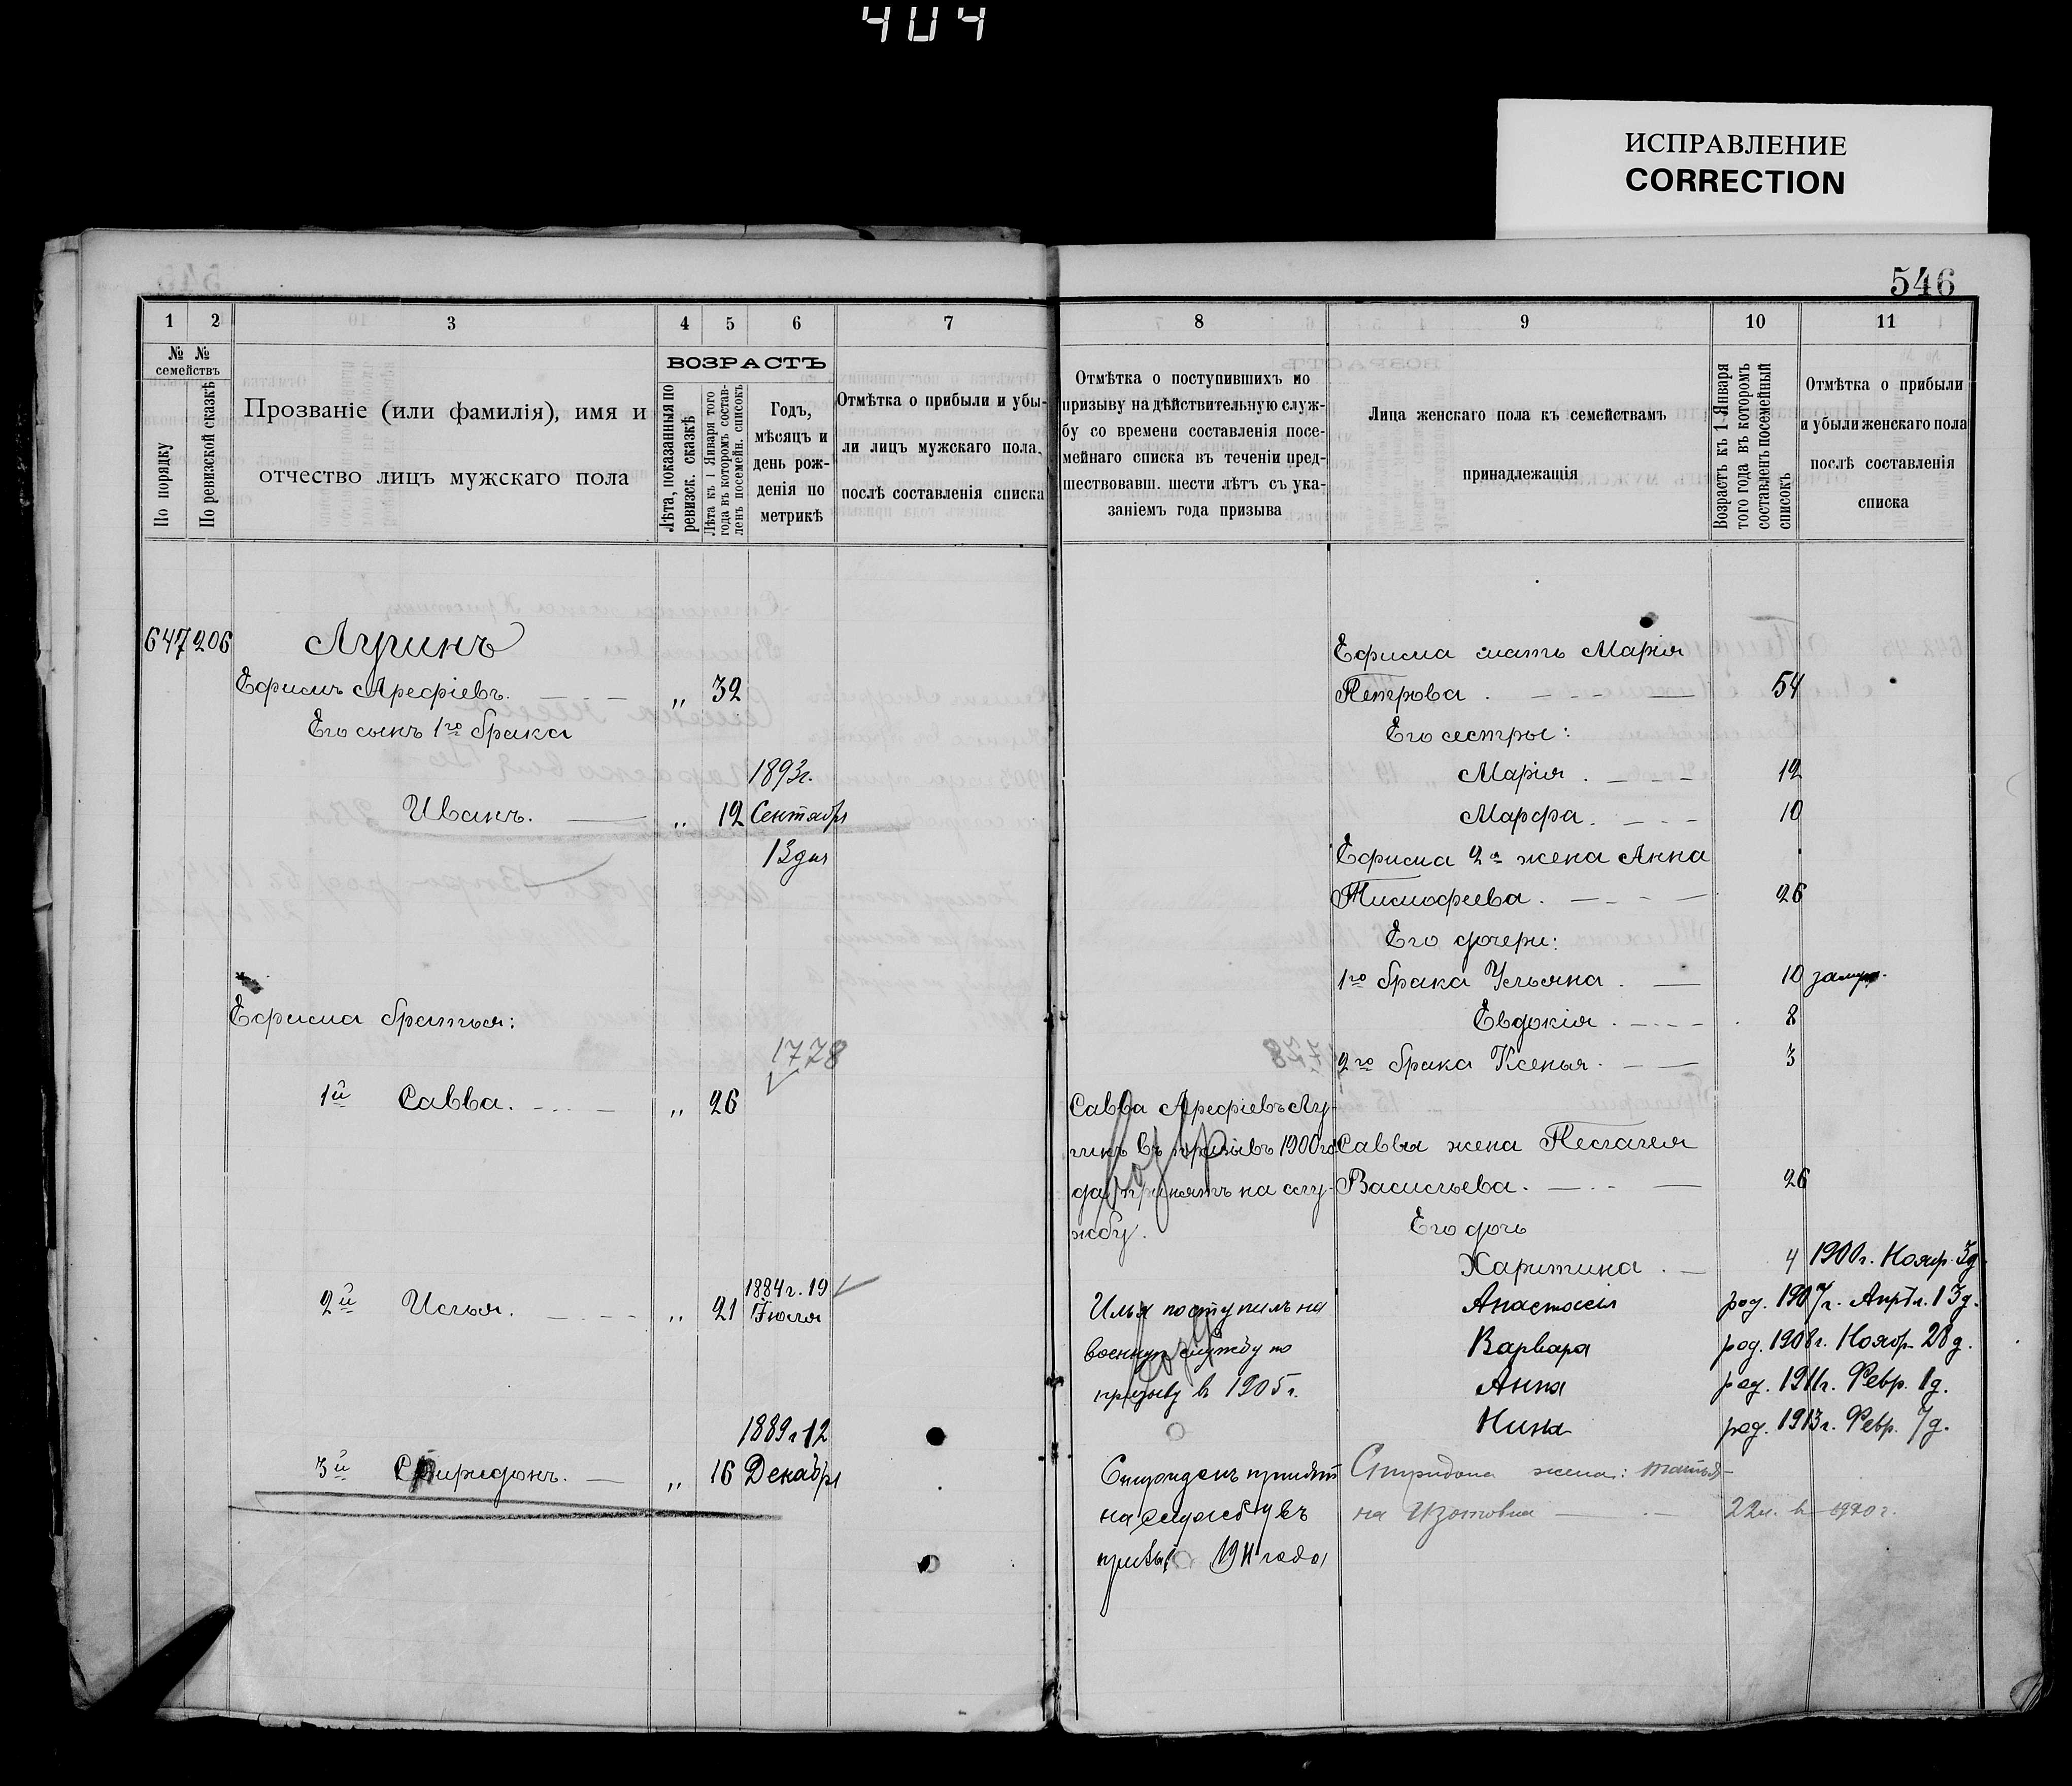 404
ИСПРАВЛЕНИЕ
CORRECTION
546
1 2 3 4 5 6 7
№ № семействъ
По порядку
По ревизской сказкѣ
Прозваніе (или фамилія), имя и
отчество лицъ мужскаго пола
ВОЗРАСТЪ
Лѣта, показанныя по
ревизск. сказкѣ
Лѣта къ 1 Января того
года въ которомъ состав-
ленъ посемейн. списокъ
Годъ,
мѣсяцъ и
день рож-
денія по
метрикѣ
Отмѣтка о прибыли и убы-
ли лицъ мужскаго пола,
послѣ составленія списка
647 206 Лугинъ
Ефимъ Арефіевъ. „ 32
Его сынъ 1го брака
1893г.
Иванъ. „ 12 Сентября
13 дня
Ефима братья:
1778
1й Савва. „ 26
1884 г. 19
2й Илья. „ 21 Іюля
1889 г 12
3й Спиридонъ. „ 16 Декабря
8 9 10 11
Отмѣтка о поступившихъ по
призыву на дѣйствительную служ-
бу со времени составленія посе-
мейнаго списка въ теченіи пред-
шествовавш. шести лѣтъ съ ука-
заніемъ года призыва
Лица женскаго пола къ семействамъ
принадлежащія
Возрастъ къ 1 Января
того года въ которомъ
составленъ посемейный
списокъ
Отмѣтка о прибыли
и убыли женскаго пола
послѣ составленія
списка
Ефима мать Марія
Петрова. 54
Его сестры:
Марія. 12
Марфа. 10
Ефима 2я жена Анна
Тимофеева. 26
Его дочери:
1го брака Ульяна. 10 замуж.
Евдокія. 8
2го брака Ксенья. 3
Савва Арефіевъ Лу-
гинъ въ призывъ 1900 го
да принятъ на слу-
жбу.
Саввы жена Пелагея
Васильева. 26
Его дочь
Харитина. 4 1900г. Нояр. 3д
Илья поступилъ на
военную службу по
призыву в 1905 г.
Анастасія род. 1907г. Апрѣл. 13д.
Варвара род. 1908г. Ноябр. 28д.
Анна род. 1911г. Февр. 1д.
Нина род. 1913г. Февр. 7д.
Спиридонъ принятъ
на службу въ
призыв 1911 года
Спиридона жена: Татья-
на Изотовна 22л. в 1920г.